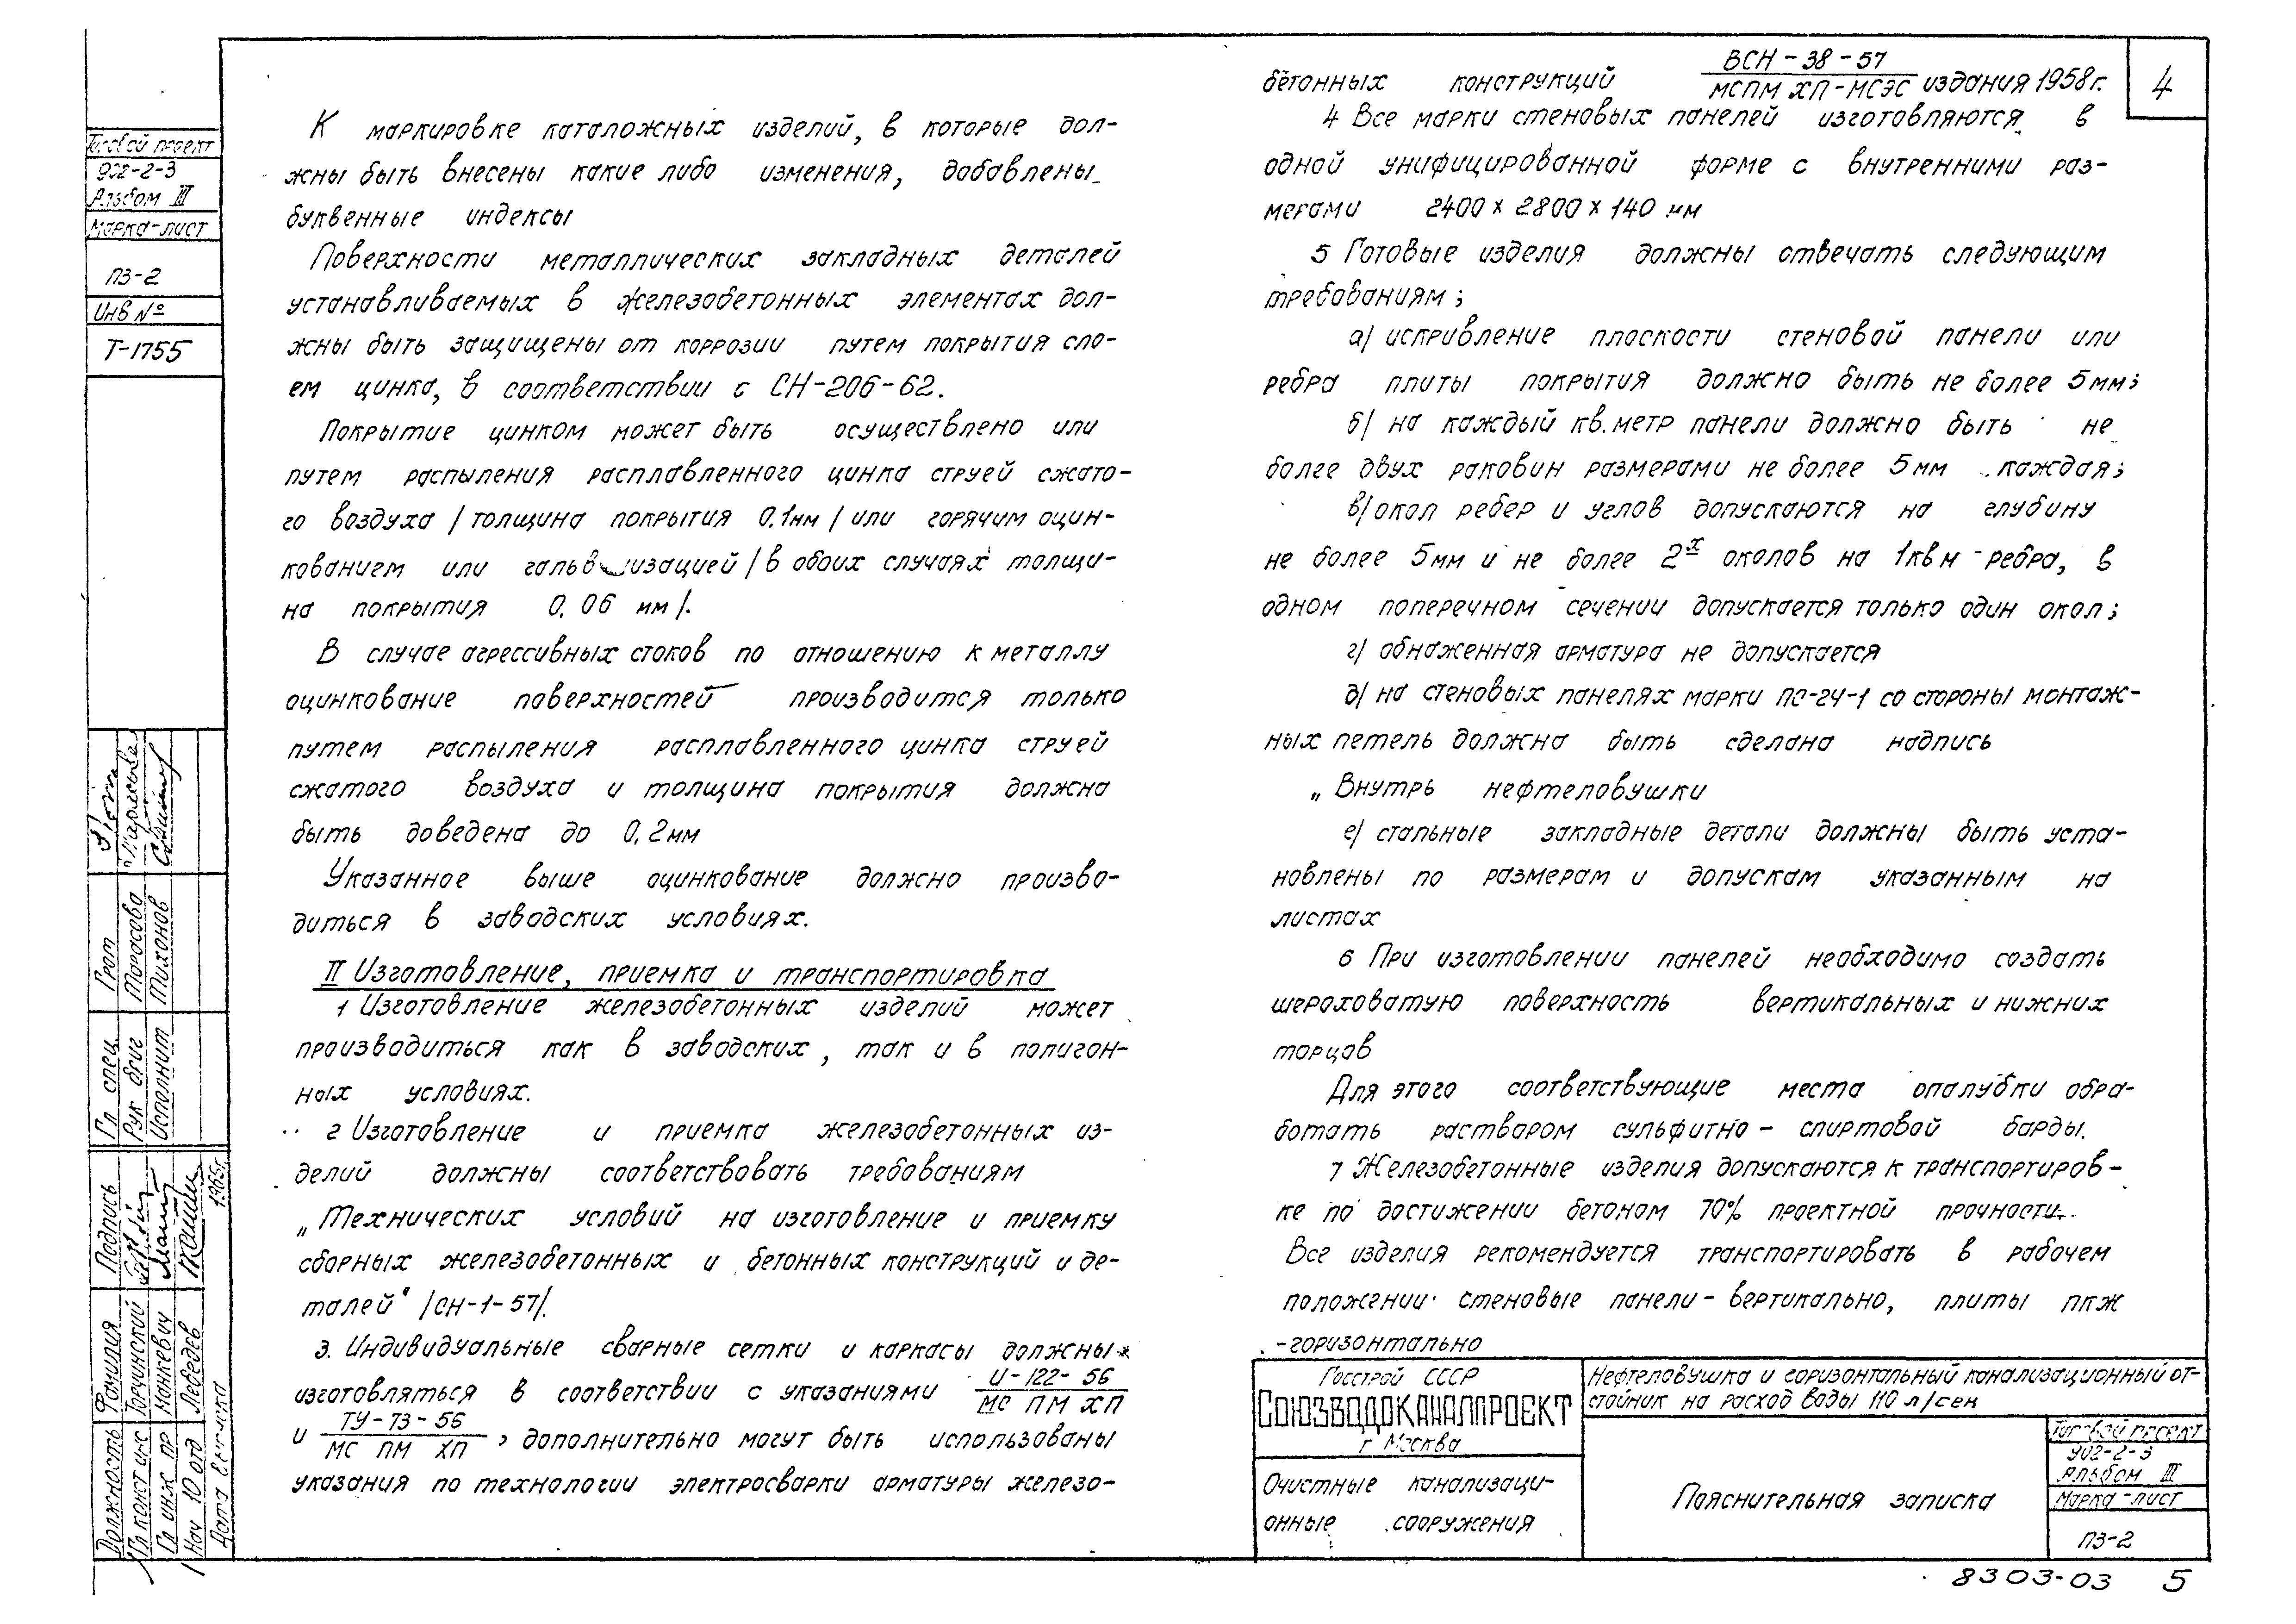 К маркировке каталожных изделий, в которые дол-
жны быть внесены какие либо изменения, добавлены
буквенные индексы
Поверхности металлических закладных деталей
устанавливаемых в железобетонных элементах дол-
жны быть защищены от коррозии путем покрытия сло-
ем цинка, в соответствии с СН-206-62.
Покрытие цинком может быть осуществлено или
путем распыления расплавленного цинка струей сжато-
го воздуха /толщина покрытия 0,1мм/ или горячим оцин-
кованием или гальванизацией /в обоих случаях толщи-
на покрытия 0,06 мм/.
В случае агрессивных стоков по отношению к металлу
оцинкование поверхностей производится только
путем распыления расплавленного цинка струей
сжатого воздуха и толщина покрытия должна
быть доведена до 0,2мм
Указанное выше оцинкование должно произво-
диться в заводских условиях.
II Изготовление, приемка и транспортировка
1 Изготовление железобетонных изделий может
производиться как в заводских, так и в полигон-
ных условиях.
2 Изготовление и приемка железобетонных из-
делий должны соответствовать требованиям
„Технических условий на изготовление и приемку
сборных железобетонных и бетонных конструкций и де-
талей" /СН-1-57/.
3. Индивидуальные сварные сетки и каркасы должны
изготовляться в соответствии с указаниями И-122-56 / МС ПМ ХП
и ТУ-73-56 / МС ПМ ХП, дополнительно могут быть использованы
указания по технологии электросварки арматуры железо-
бетонных конструкций ВСН-38-57 / МСПМ ХП-МСЭС издания 1958г.
4 Все марки стеновых панелей изготовляются в
одной унифицированной форме с внутренними раз-
мерами 2400 х 2800 х 140 мм
5 Готовые изделия должны отвечать следующим
требованиям;
а/ искривление плоскости стеновой панели или
ребра плиты покрытия должно быть не более 5мм;
б/ на каждый кв.метр панели должно быть не
более двух раковин размерами не более 5мм каждая;
в/ окол ребер и углов допускаются на глубину
не более 5мм и не более 2х околов на 1кв м ребра, в
одном поперечном сечении допускается только один окол;
г/ обнаженная арматура не допускается
д/ на стеновых панелях марки ПС-24-1 со стороны монтаж-
ных петель должна быть сделана надпись
„Внутрь нефтеловушки
е/ стальные закладные детали должны быть уста-
новлены по размерам и допускам указанным на
листах
6 При изготовлении панелей необходимо создать
шероховатую поверхность вертикальных и нижних
торцов
Для этого соответствующие места опалубки обра-
ботать раствором сульфитно-спиртовой барды.
7 Железобетонные изделия допускаются к транспортиров-
ке по достижении бетоном 70% проектной прочности.
Все изделия рекомендуется транспортировать в рабочем
положении стеновые панели-вертикально, плиты ПКЖ
-горизонтально
4
Типовой проект
902-2-3
Альбом III
Марка-лист
ПЗ-2
Инв №
Т-1755
Гл спец Грот
Рук бриг Тарасова
Исполнит Тихонов
Должность Фамилия Подпись
Гл конст инс Торчинский
Гл инж пр Манкевич
Нач 10 отд Лебедев
Дата 1965г.
Госстрой СССР
СОЮЗВОДОКАНАЛПРОЕКТ
г Москва
Нефтеловушка и горизонтальный канализационный от-
стойник на расход воды 110 л/сек
Очистные канализаци-
онные сооружения
Пояснительная записка
Типовой проект
902-2-3
Альбом III
Марка-лист
ПЗ-2
8303-03 5